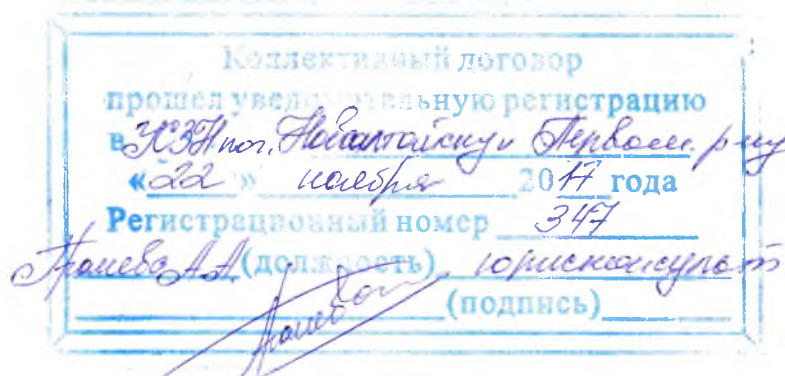 Коллективный договор
прошел уведомительную регистрацию
в УСЗН по г. Новоалтайску и Первом. р-ну
«22» ноября 2017 года
Регистрационный номер 347
А.А. (должность) юрисконсульт
(подпись)